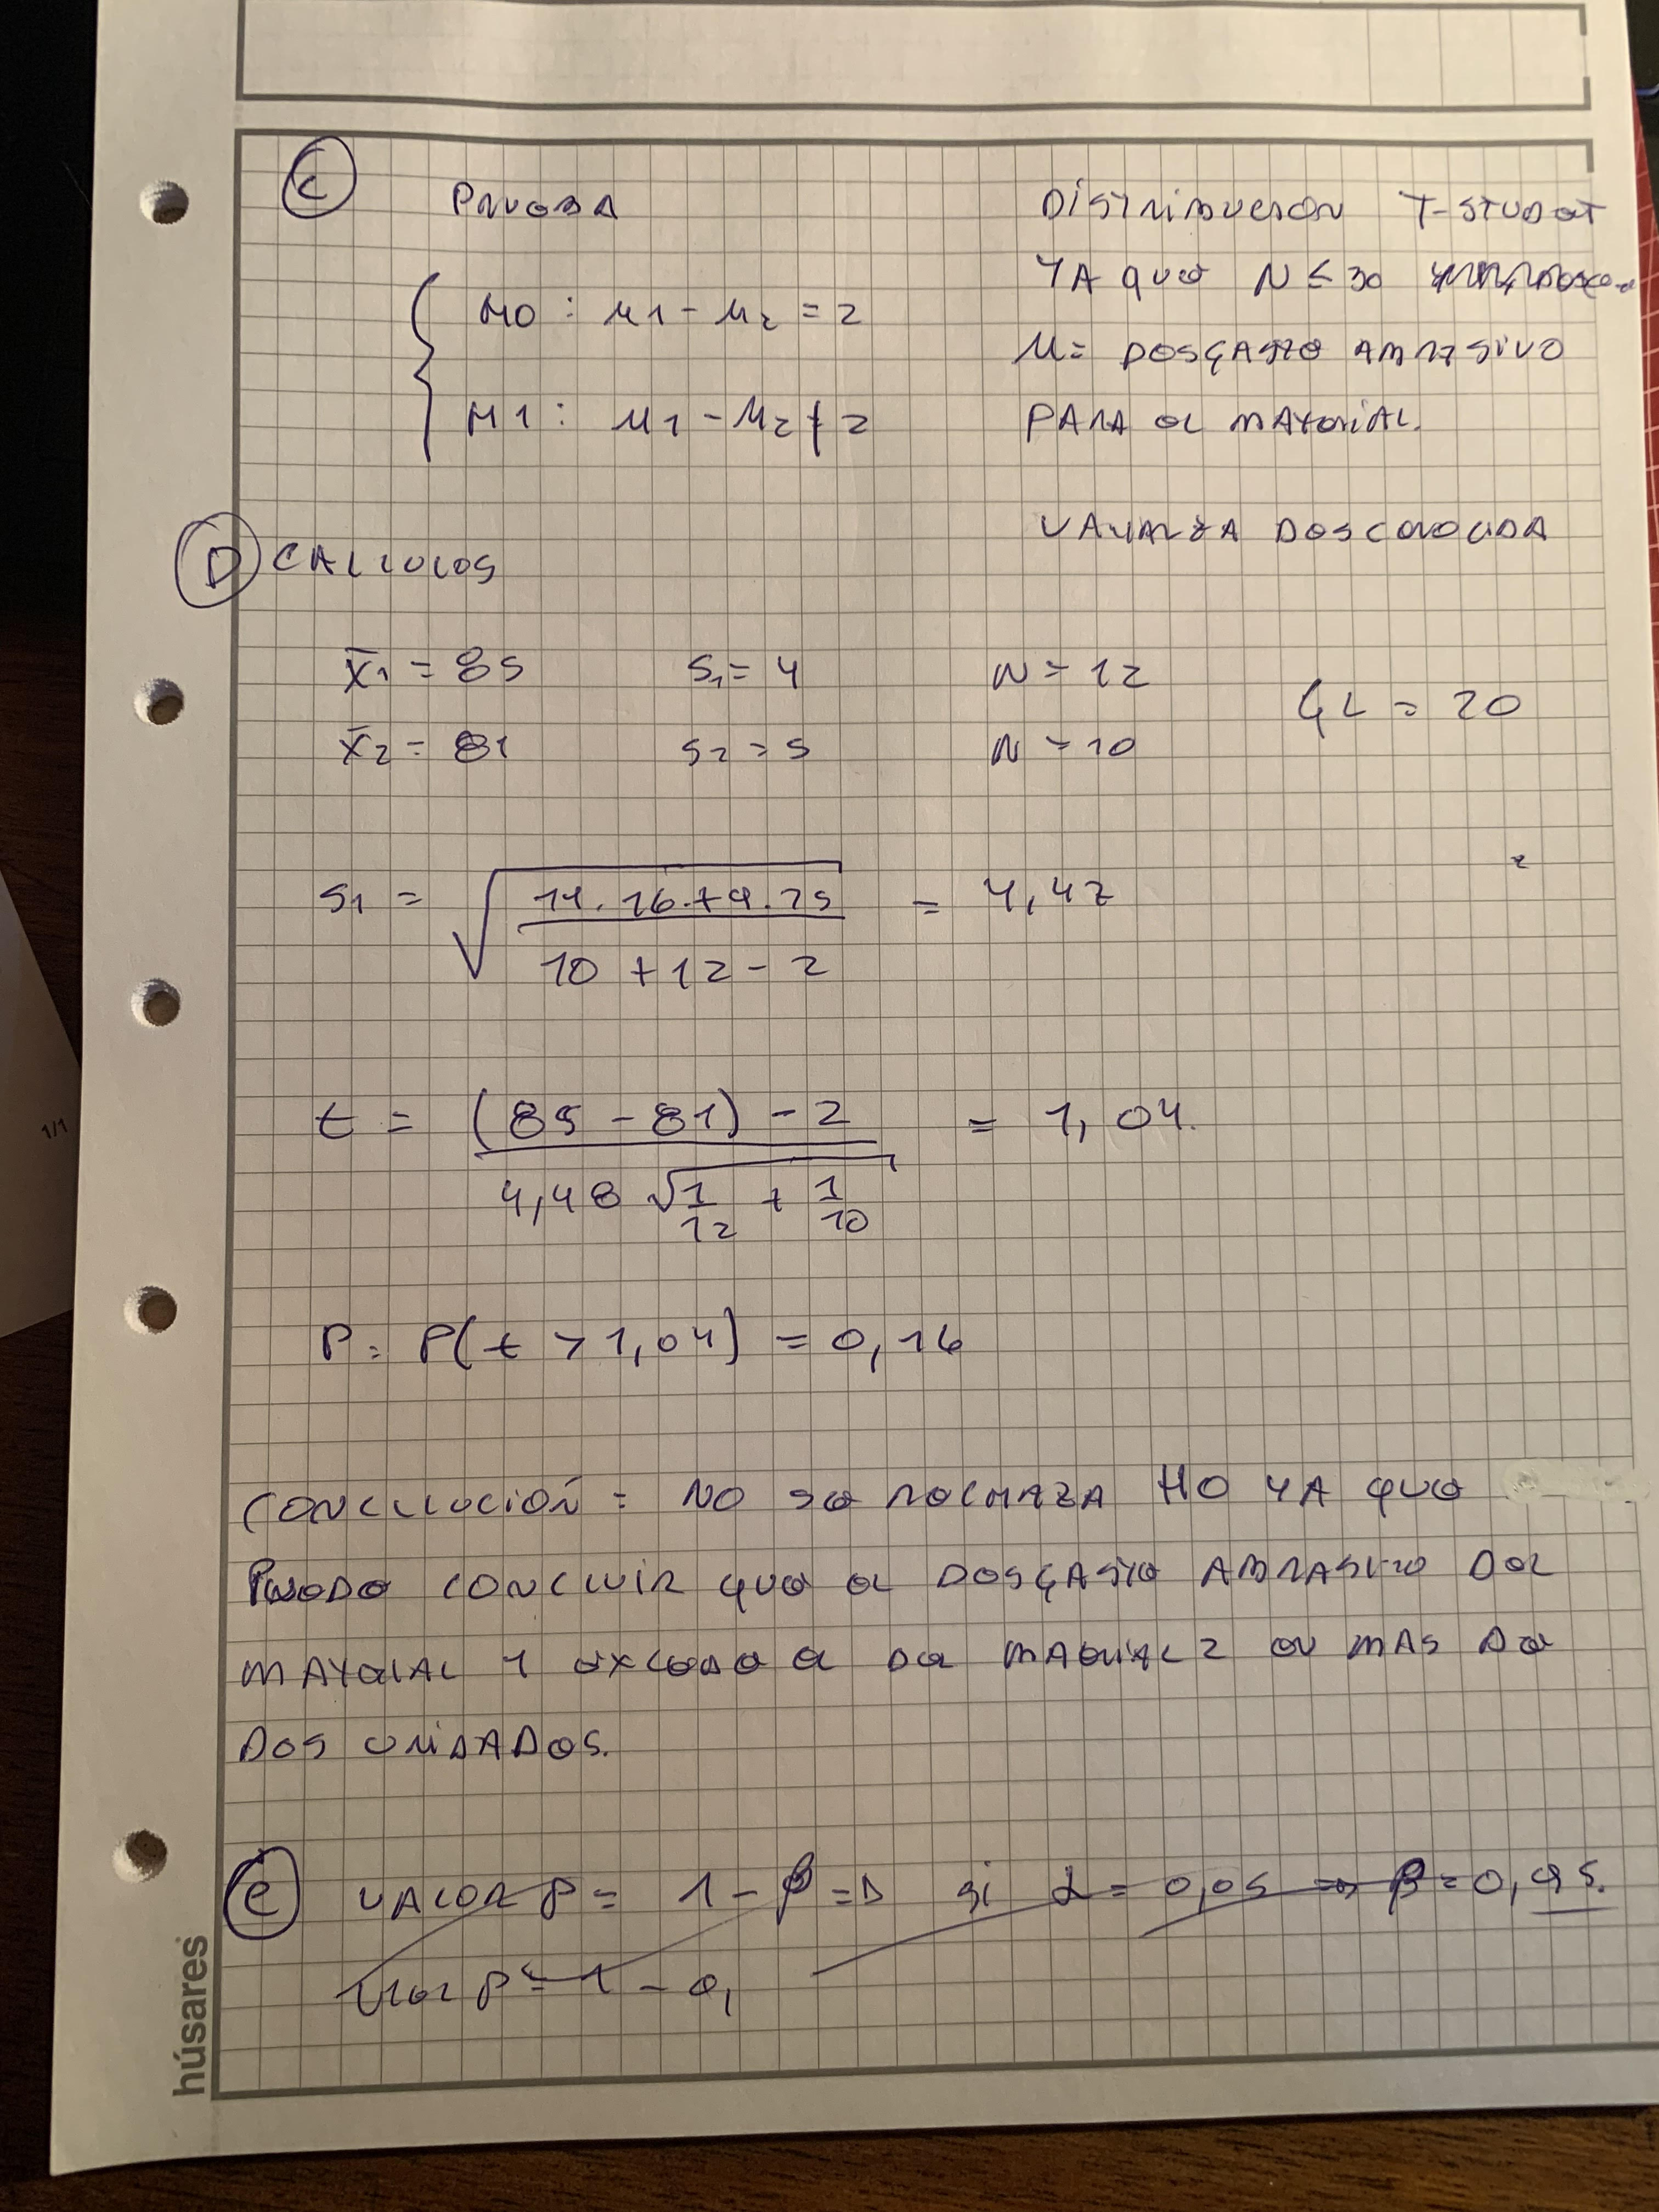 C PRUEBA DISTRIBUCION T-STUDET
YA QUE N ≤ 30
H0 : μ1 - μ2 = 2
μ = DESGASTE ABRASIVO
H1 : μ1 - μ2 ≠ 2
PARA EL MATERIAL.
VARIANZA DESCONOCIDA
D CALCULOS
x̄1 = 85 S1 = 4 N = 12
GL = 20
x̄2 = 81 S2 = 5 N = 10
S1 = √((11.16.+9.25)/(10 + 12 - 2)) = 4,47
t = ((85 - 81) - 2)/(4,48 √(1/12 + 1/10)) = 1,04.
P = P(t > 1,04) = 0,16
CONCLUCIÓN = NO SE RECHAZA H0 YA QUE
PUEDO CONCLUIR QUE EL DESGASTE ABRASIVO DEL
MATERIAL 1 EXCEDE EL DEL MATERIAL 2 EN MAS DE
DOS UNIDADES.
e VALOR P = 1 - β => si α = 0,05 => β = 0,95.
VALOR P = 1 - 0,
húsares
1/1